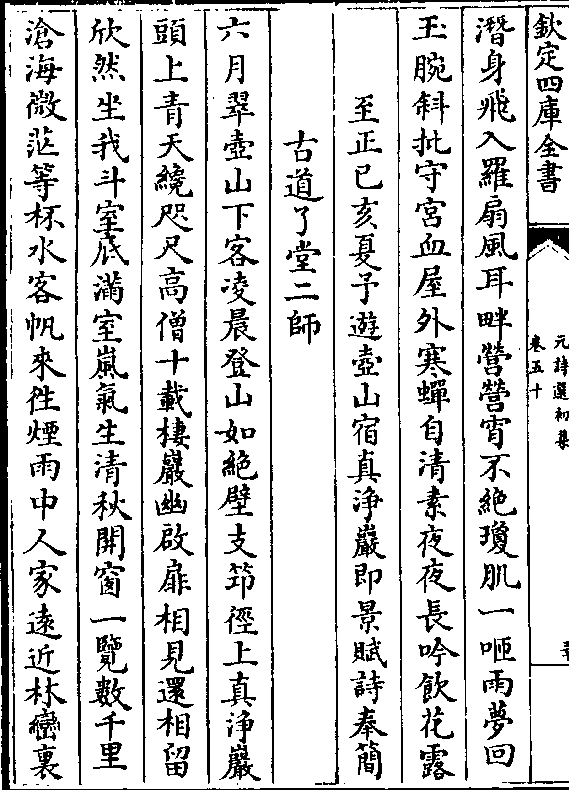 欽定四庫全書
元詩選初集
卷五十
潛身飛入羅扇風耳畔營營宵不絶瓊肌一咂雨夢回
玉腕斜批守宮血屋外寒蟬自清素夜夜長吟飲花露
至正已亥夏予遊壺山宿真浄巖即景賦詩奉簡
古道了堂二師
六月翠壺山下客凌晨登山如絶壁支笻徑上真浄巖
頭上青天纔咫尺高僧十載棲巖幽啟扉相見還相留
欣然坐我斗室底滿室嵐氣生清秋開窗一覽數千里
滄海微茫等杯水客帆來徃煙雨中人家逺近林巒裏